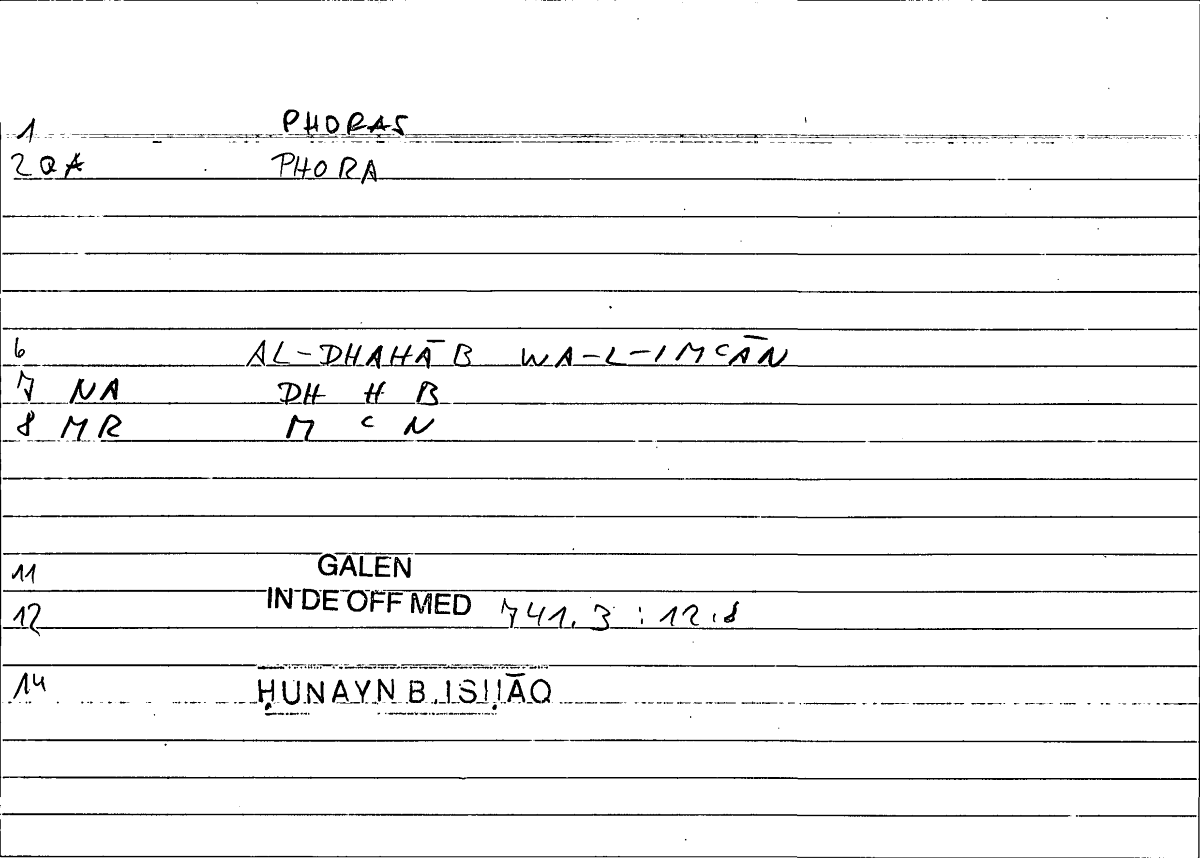 1 PHORAS
2 QA PHORA
6 AL-DHAHĀB WA-L-IMCĀN
7 NA DH H B
8 MR M C N
11 GALEN
12 IN DE OFF MED 741.3 : 12.8
14 ḤUNAYN B. ISḤĀQ